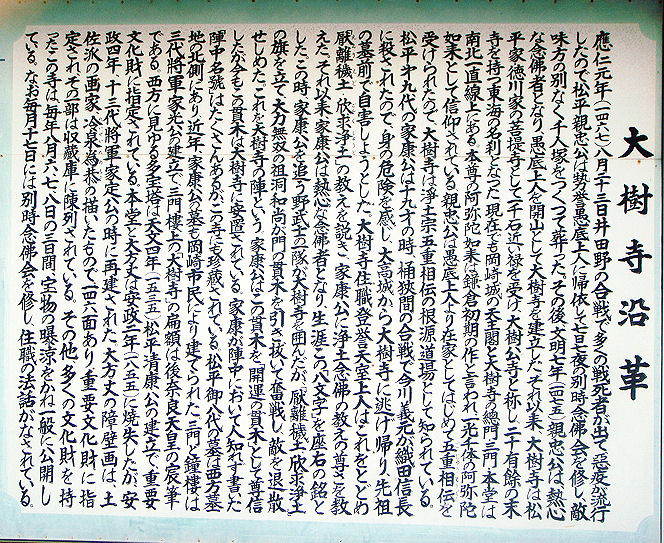 大樹寺沿革
應仁元年(一四六七)八月二十三日井田野の合戦で多くの戦死者が出て、悪疫が流行
したので松平親忠公は勢誉愚底上人に帰依して七日七夜の別時念佛会を修し、敵
味方の別なく千人塚をつくって葬った。その後、文明七年(一四七五)親忠公は、熱心
な念佛者となり愚底上人を開山として大樹寺を建立した。それ以来、大樹寺は松
平家、徳川家の菩提寺として二千石近い禄を受け、大樹公寺と称し二十有餘の末
寺を持つ東海の名刹となった。現在でも岡崎城の天主閣と大樹寺の總門、三門、本堂は
南北一直線上にある。本尊の阿弥陀如来は鎌倉初期の作と言われ、一光千体の阿弥陀
如来として信仰されている。親忠公は愚底上人より在家としてはじめて五重相伝を
受けられたので、大樹寺は浄土宗五重相伝の根源道場として知られている。
松平十九代の家康公は十九才の時、桶狭間の合戦で今川義元が織田信長
に殺されたので、身の危険を感じ、大高城から大樹寺に逃げ帰り、先祖
の墓前で自害しようとした。大樹寺住職登誉天室上人はこれをとどめ
「厭離穢土、欣求浄土」の教えを説き、家康公に浄土念佛の教えの尊さを教
えた。それ以来、家康公は熱心な念佛者となり、生涯この八文字を座右の銘と
した。この時、家康公を追う野武士の一隊が大樹寺を囲んだが、「厭離穢土、欣求浄土」
の旗を立て、大力無双の祖洞和尚が門の貫木を引き抜いて奮戦し、敵を退散
せしめた。これを大樹寺の陣という。家康公はこの貫木を開運の貫木として尊信
したが今もこの貫木は大樹寺に安置されている。家康が陣中において人知れず書いた
陣中名號はたくさんあるが、この寺に珍蔵されている。松平御八代の墓は西方墓
地の北側にあり近年、家康公の墓も岡崎市民により建てられた。三門と鐘樓は
三代將軍家光公の建立で、三門樓上の大樹寺の扁額は後奈良天皇の宸筆
である。西方に見ゆる多宝塔は天文四年(一五三五)松平清康公の建立で、重要
文化財に指定されている。本堂と大方丈は安政二年(一八五五)に焼失したが、安
政四年、十三代將軍家定公の時に再建された。大方丈の障壁画は、土
佐派の画家、冷泉為恭の描いたもので一四六面あり、重要文化財に指
定され、その一部は収蔵庫に陳列されている。その他、多くの文化財を持
ったこの寺は毎年八月六、七、八日の三日間、宝物の曝涼をかね一般に公開し
ている。なお毎月十七日には別時念佛会を修し、住職の法話がなされている。